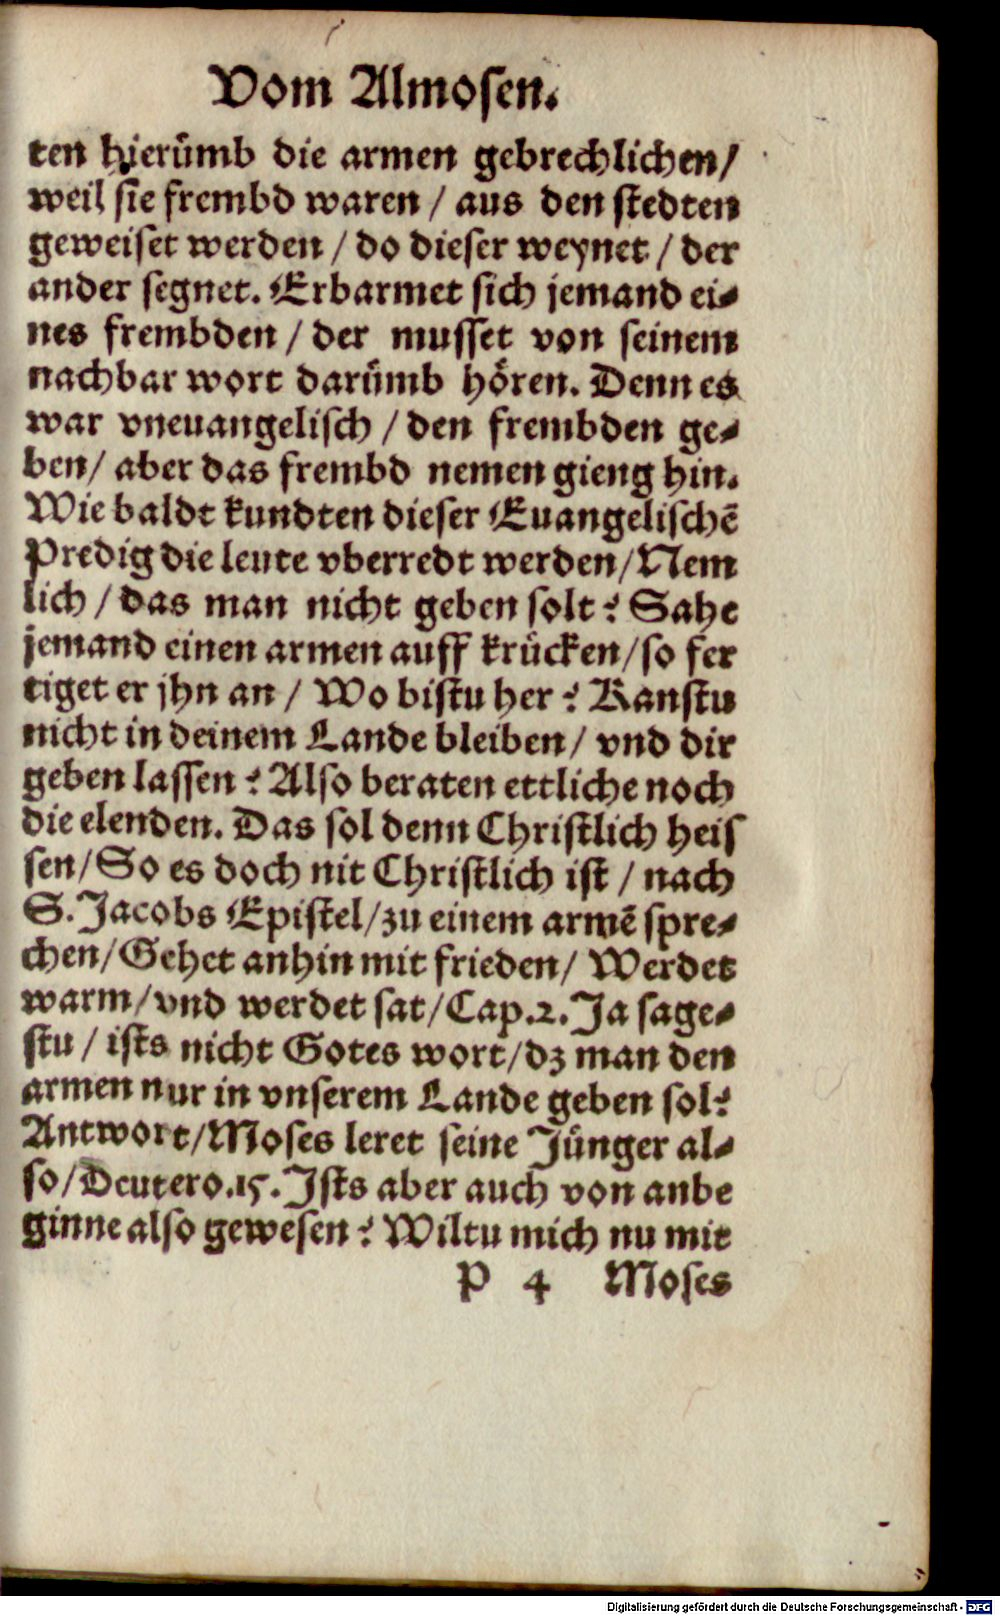 Vom Almosen.
ten hierümb die armen gebrechlichen/
weil sie frembd waren / aus den stedten
geweiset werden / do dieser weynet / der
ander segnet. Erbarmet sich jemand ei⸗
nes frembden / der musset von seinem
nachbar wort darümb hören. Denn es
war vneuangelisch / den frembden ge⸗
ben/ aber das frembd nemen gieng hin.
Wie baldt kundten dieser Euangelischē
Predig die leute vberredt werden/Nem
lich / das man nicht geben solt? Sahe
jemand einen armen auff krücken/so fer
tiget er jhn an / Wo bistu her? Kanstu
nicht in deinem Lande bleiben/ vnd dir
geben lassen? Also beraten ettliche noch
die elenden. Das sol denn Christlich heis
sen/So es doch nit Christlich ist / nach
S. Jacobs Epistel/zu einem armē spre⸗
chen/Gehet anhin mit frieden/ Werdet
warm/vnd werdet sat/Cap.2. Ja sage⸗
stu / ists nicht Gotes wort/dz man den
armen nur in vnserem Lande geben sol?
Antwort/Moses leret seine Jünger al⸗
so/Deutero.15. Ists aber auch von anbe
ginne also gewesen? Wiltu mich nu mit
P 4 Moses
Digitalisierung gefördert durch die Deutsche Forschungsgemeinschaft - DFG